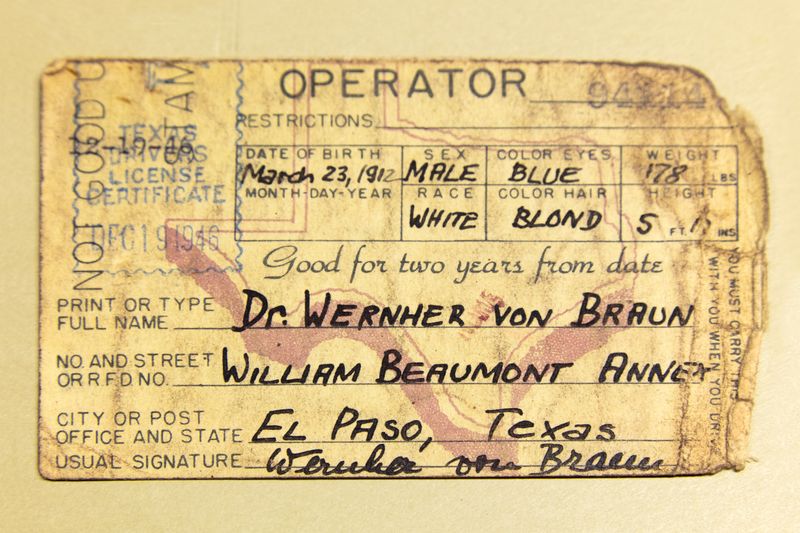 OPERATOR
RESTRICTIONS
TEXAS
DRIVERS
LICENSE
CERTIFICATE
DEC 19 1946
NOT GOOD
DATE OF BIRTH SEX COLOR EYES WEIGHT
March 23, 1912 MALE BLUE 178 LBS
MONTH-DAY-YEAR RACE COLOR HAIR HEIGHT
WHITE BLOND 5 FT. INS
Good for two years from date
PRINT OR TYPE
FULL NAME Dr. WERNHER VON BRAUN
NO. AND STREET
OR R.F.D NO. WILLIAM BEAUMONT ANNEX
CITY OR POST
OFFICE AND STATE EL PASO, Texas
USUAL SIGNATURE Wernher von Braun
YOU MUST CARRY THIS
WITH YOU WHEN YOU DRIVE